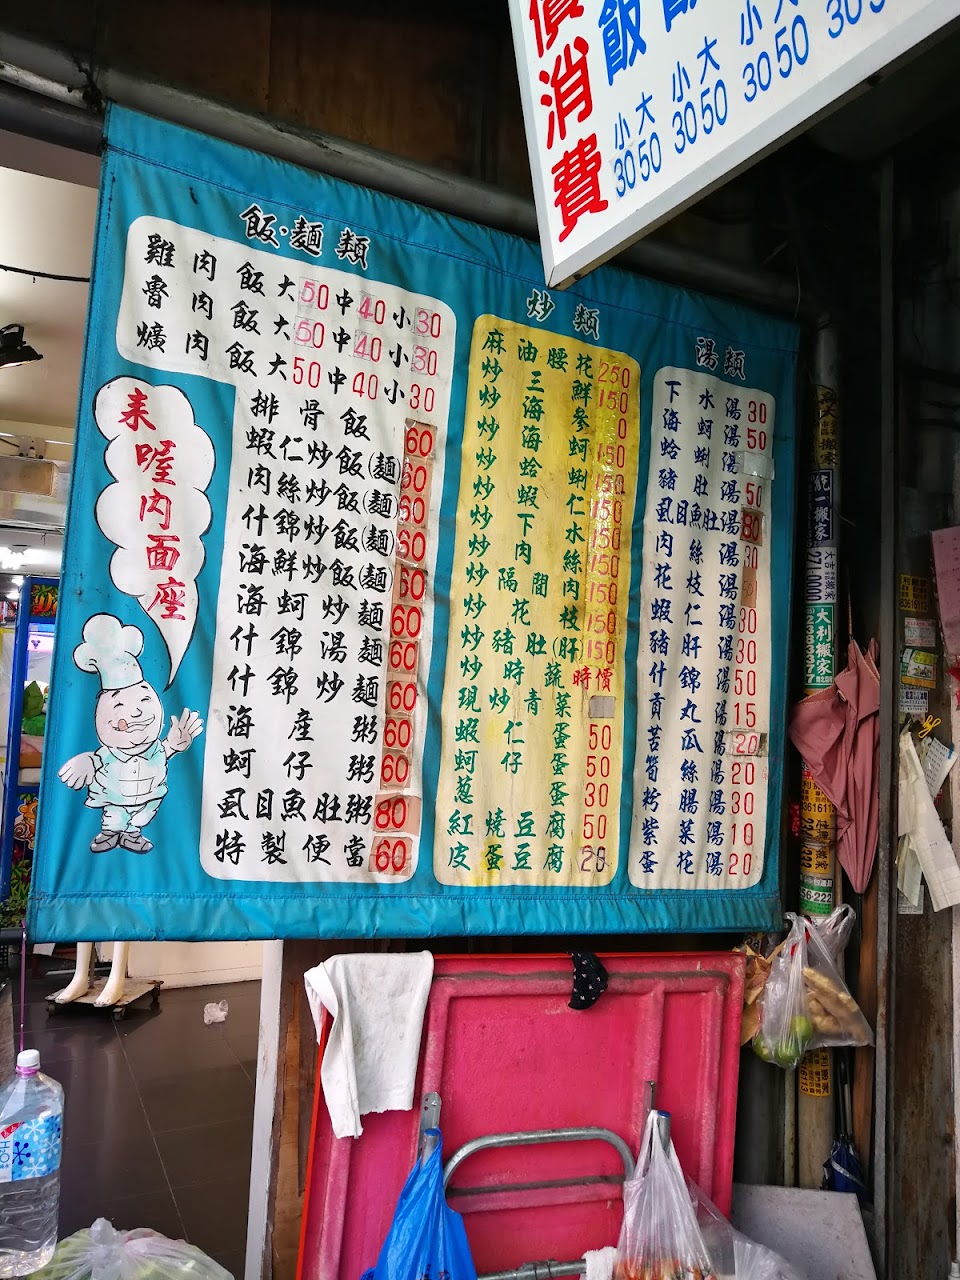 價消費
飯
小 大 小 大 小 大
30 50 30 50 30 50
飯·麵類
雞肉飯大50中40小30
魯肉飯大50中40小30
爌肉飯大50中40小30
排骨飯60
蝦仁炒飯(麵)60
肉絲炒飯(麵)60
什錦炒飯(麵)60
海鮮炒飯(麵)60
海蚵炒麵60
什錦湯麵60
什錦炒麵60
海產粥60
蚵仔粥60
虱目魚肚粥80
特製便當60
來喔內面座
炒類
麻油腰花250
炒三鮮150
炒海參
炒海蚵150
炒蛤蜊150
炒蝦仁150
炒下水150
炒肉絲150
炒隔間肉150
炒花枝150
炒豬肚(肝)150
炒時蔬時價
現炒青菜
蝦仁蛋50
蚵仔蛋50
蔥蛋30
紅燒豆腐50
皮蛋豆腐20
湯類
下水湯30
海蚵湯50
蛤蜊湯
豬肚湯50
虱目魚肚湯80
肉絲湯30
花枝湯
蝦仁湯30
豬肝湯30
什錦湯50
貢丸湯15
苦瓜湯20
筍絲湯20
粉腸湯30
紫菜湯10
蛋花湯20
統一搬家
271-0000
大利搬家